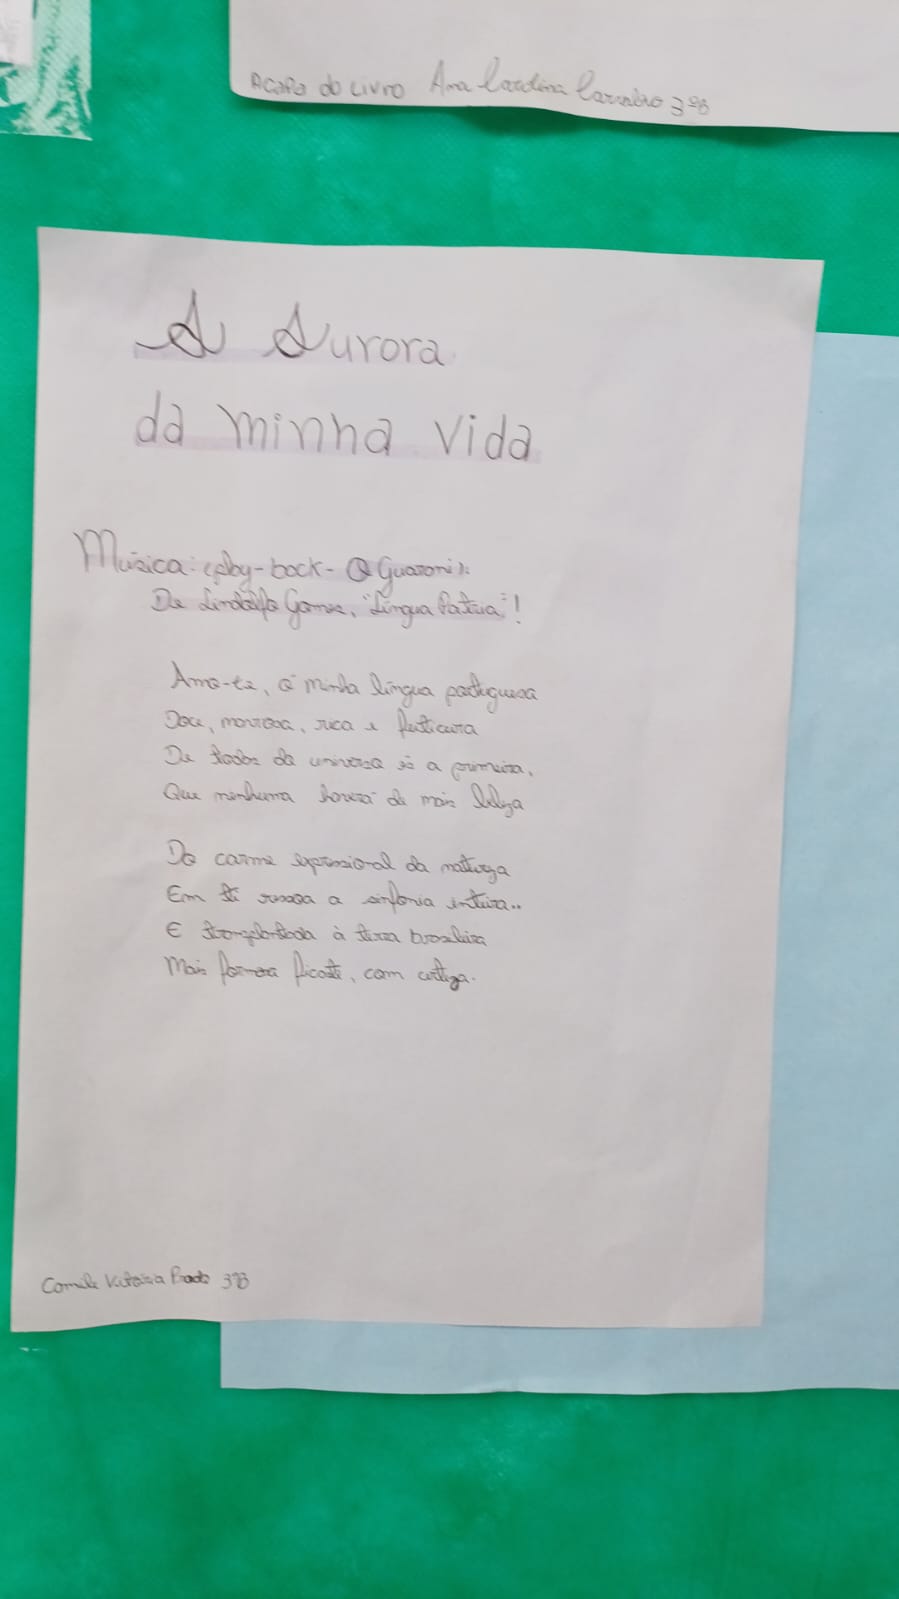 A CAPA do Livro Ana Carolina Carneiro 3ºB
A Aurora
da minha vida
Música: (play-back - O Guarani):
De Lindolfo Gomes, "Língua Pátria"!
Amo-te, ó minha língua portuguesa
Doce, maviosa, rica e feiticeira
De todas do universo és a primeira,
Que nenhuma haverá de mais beleza
Do carme expressional da natureza
Em ti ressoa a sinfonia inteira..
E transplantada à terra brasileira
Mais formosa ficaste, com certeza.
Camila Victória Prado 3ºB